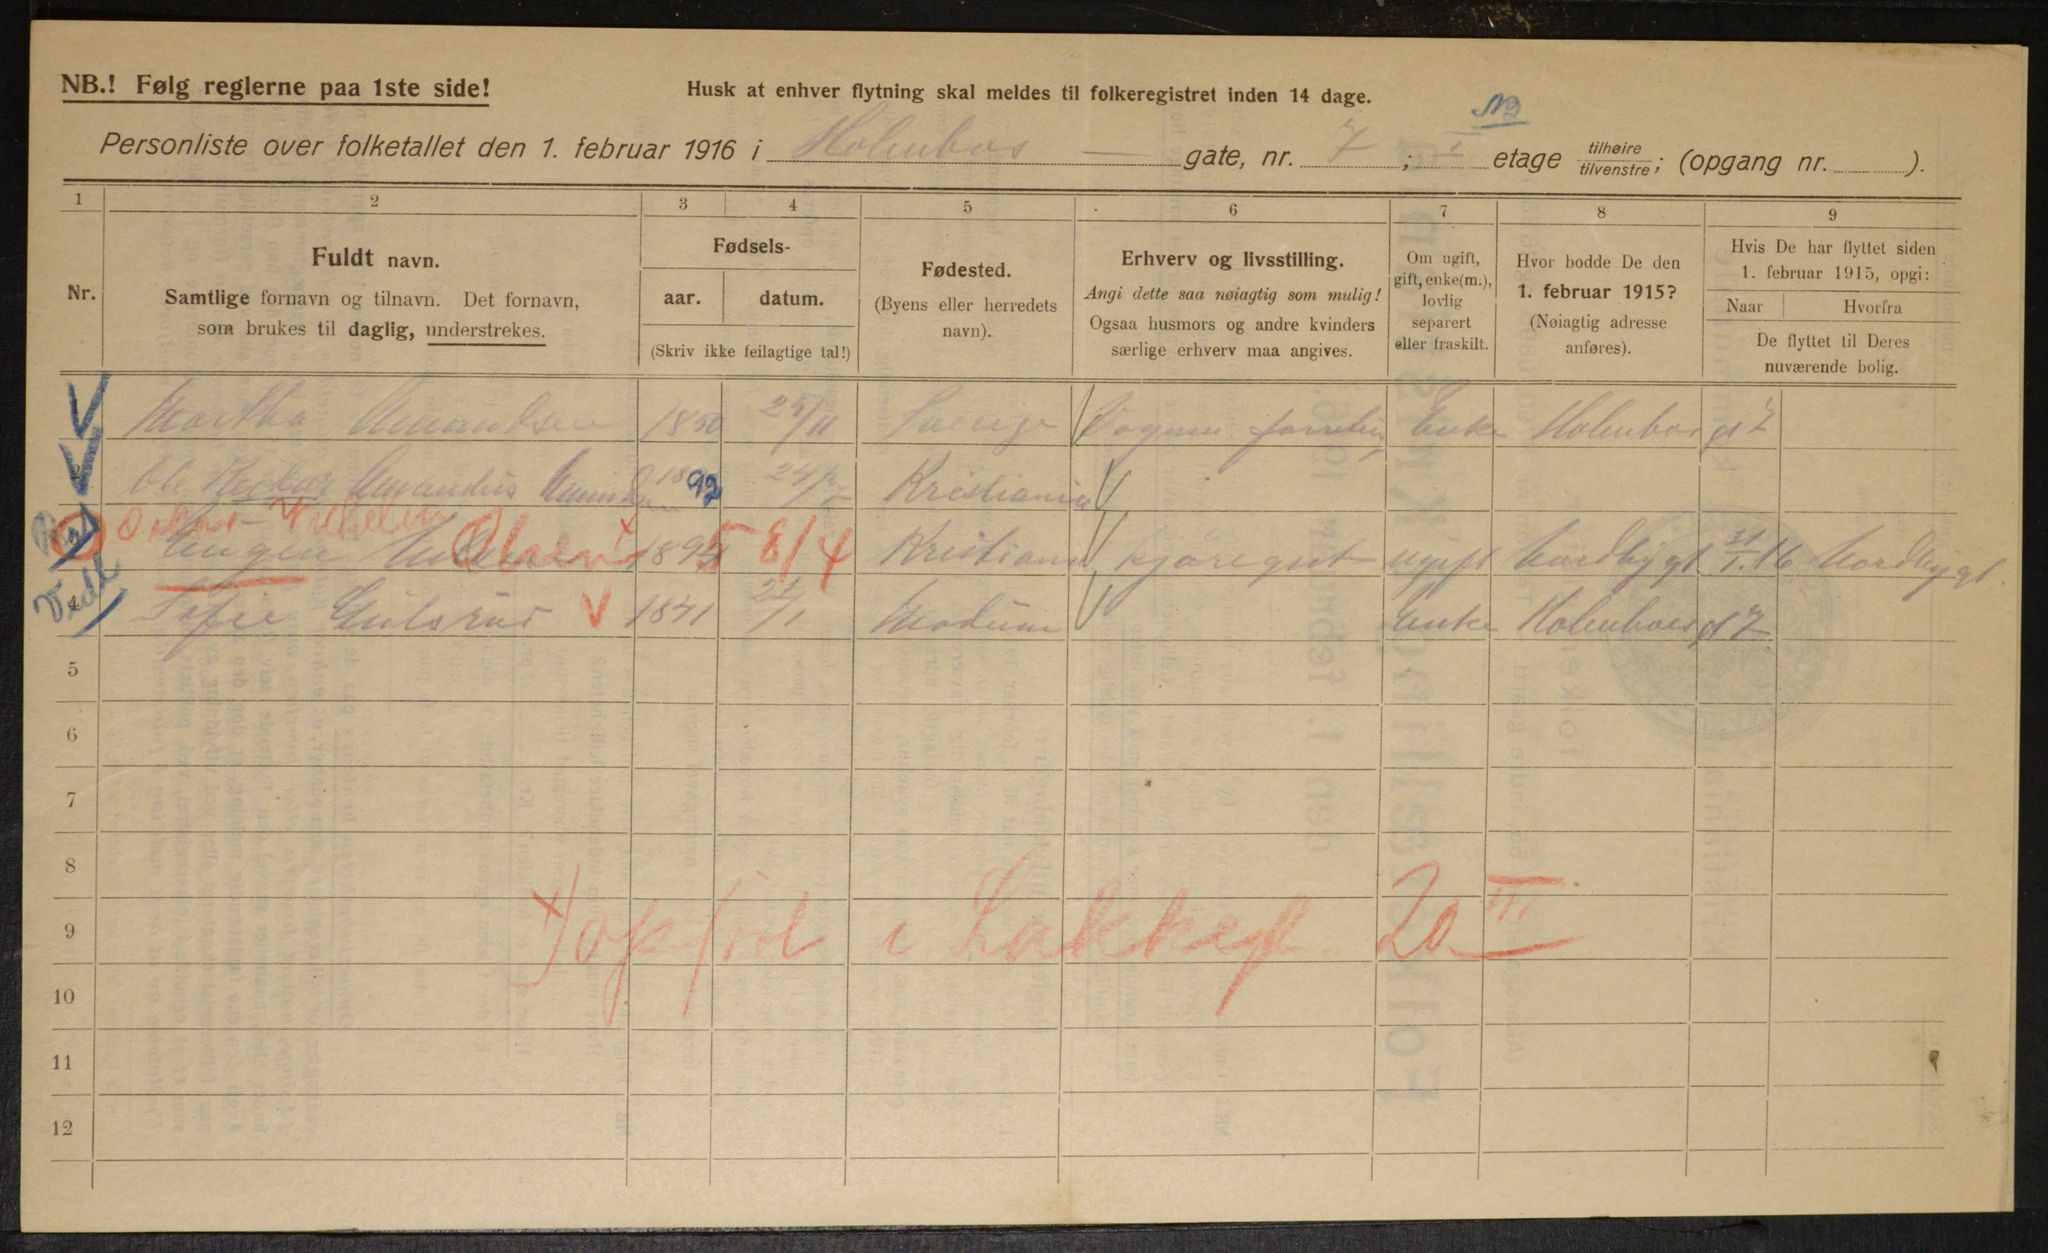 NB.! Følg reglerne paa 1ste side!
Husk at enhver flytning skal meldes til folkeregistret inden 14 dage.
NB
Personliste over folketallet den 1. februar 1916 i Holenbos gate, nr. 7; I etage tilhøire/tilvenstre; (opgang nr. ).
1 2 3 4 5 6 7 8 9
Nr.
Fuldt navn.
Samtlige fornavn og tilnavn. Det fornavn,
som brukes til daglig, understrekes.
Fødsels-
aar. datum.
(Skriv ikke feilagtige tal!)
Fødested.
(Byens eller herredets
navn).
Erhverv og livsstilling.
Angi dette saa nøiagtig som mulig!
Ogsaa husmors og andre kvinders
særlige erhverv maa angives.
Om ugift,
gift, enke(m.),
lovlig
separert
eller fraskilt.
Hvor bodde De den
1. februar 1915?
(Nøiagtig adresse
anføres).
Hvis De har flyttet siden
1. februar 1915, opgi:
Naar Hvorfra
De flyttet til Deres
nuværende bolig.
Martha Amundsen 1850 25/11 Enke Holenbosgt 7
Ole Amandus 1892 Kristiania
Oskar Vilhelm
Eugen Olsen 1895 8/4 Kristiania kjøregut ugift Nordbygt 31/1.16 Nordbygt.
4 Sofie Gulsrud 1841 Modum Enke Holenboesgt 7
5
6
7
8
9
x) opført i Lakkegt 20 III
10
11
12